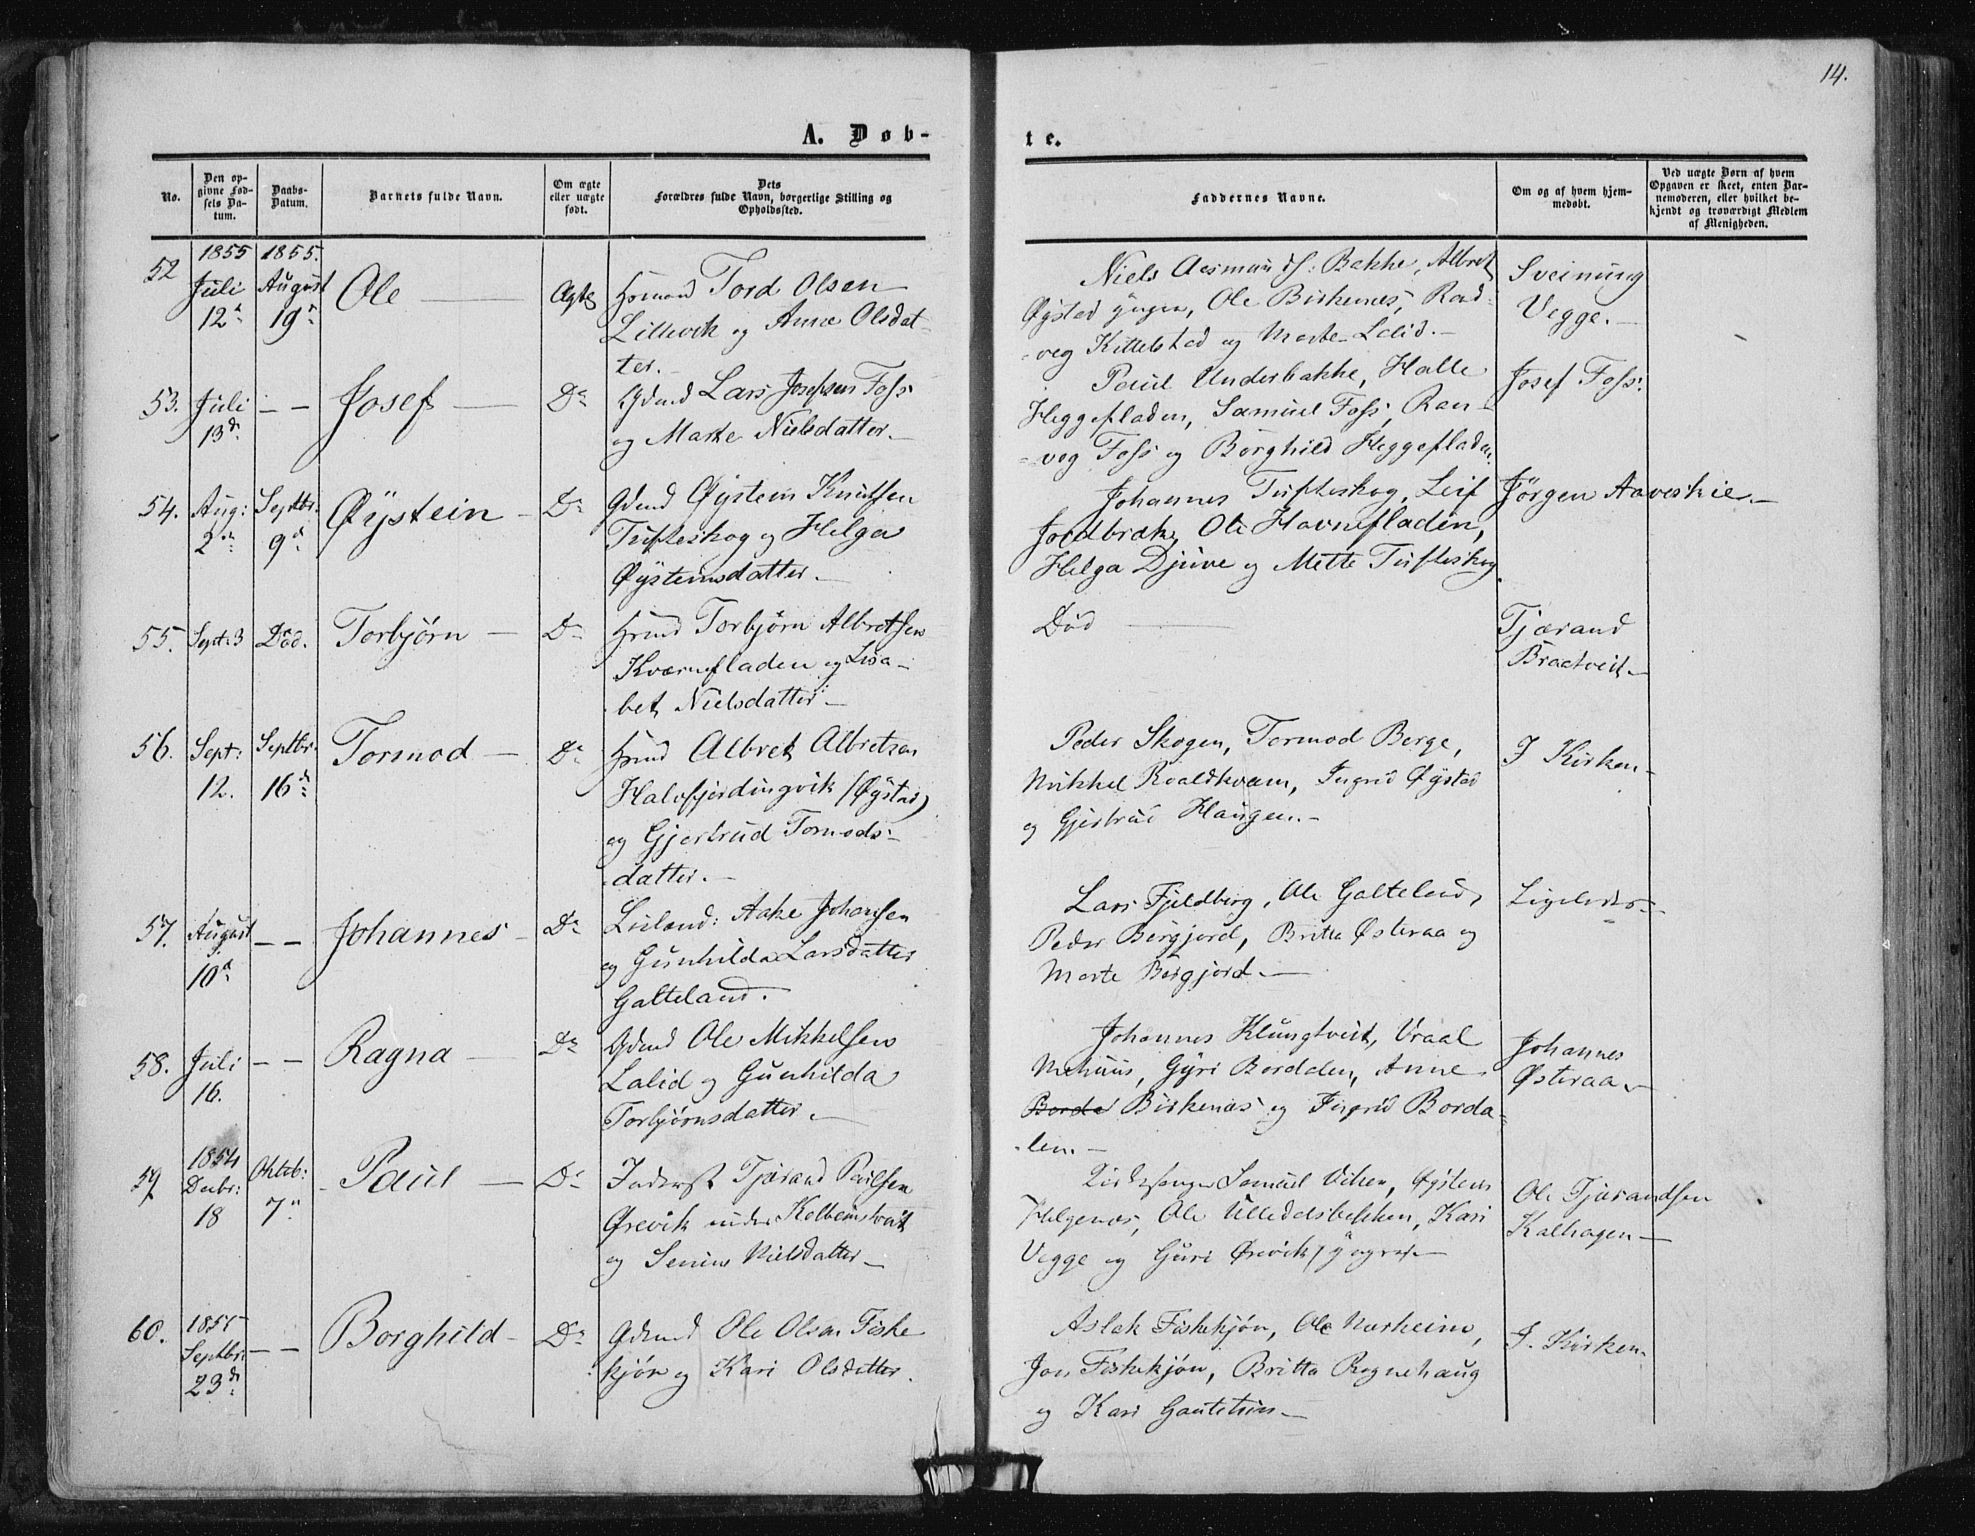 14.
A. Døb-
te.
No.
Den opgivne Fødsels Datum.
Daabs-Datum.
Barnets fulde Navn.
Om ægte eller uægte født.
Dets Forældres fulde Navn, borgerlige Stilling og Opholdssted.
Faddernes Navne.
Om og af hvem hjemmedøbt.
Ved uægte Børn af hvem Opgaven er skeet, enten Barnemoderen, eller hvilket bekjendt og troværdigt Medlem af Menigheden.
52
1855 Juli 12te
1855. August 19de
Ole
Ægte
Hsmand Tord Olsen
Lillevik og Anne Olsdat-
ter.
Niels Aasmunds: Bakke, Albret
Øystad, Ole Birkenes, Rand-
veg Kittelstad og Marte Lalid.
Sveinung
Vegge.
53.
Juli 13de
— —
Josef
Do
Gdmd Lars Josefsen Foss
og Marte Nielsdatter.
Paul Underbakke, Halle
Heggefladen, Samuel Foss, Ran-
veg Foss og Borghild Heggefladen.
Josef Foss.
54.
Aug: 2den
Septbr. 9de
Øystein
Do
Gdmd Øystein Knutsen
Tufteskog og Helga
Øysteinsdatter.
Johannes Tufteskog, Leif
Jordbrække, Ole Havnefladen,
Helga Djuve og Mette Tufteskog
Jørgen Aaveskie.
55.
Sept: 3
Død.
Torbjørn
Do
Hsmd Torbjørn Albretsen
Kværnefladen og Lisa-
bet Nielsdatter
Død
Tjærand
Bratveit
56.
Sept: 12.
Septbr. 16de
Tormod
Do
Hsmd Albret Albretsen
Halvfjerdingvik (Øystad)
og Gjertrud Tormods-
datter.
Peder Skogen, Tormod Berge,
Mikkel Roaldkvam, Ingrid Øystad
og Gjertrud Haugen.
I Kirken
57.
August 10de
— —
Johannes
Do
Leiland: Aake Johansen
og Gunhilda Larsdatter
Galteland.
Lars Fjeldberg, Ole Galteland,
Peder Bergjord, Britta Østeraa og
Marte Bergjord.
Ligeledes
58.
Juli 16.
— —
Ragna
Do
Gdmd Ole Mikkelsen
Lalid og Gunhilda
Torbjørnsdatter.
Johannes Klungtveit, Vraal
Mehuus, Gyri Bordalen, Anne
Borda Birkenes og Ingrid Borda-
len.
Johannes
Østeraa
59
1854 Decbr: 18
Oktob: 7de
Paul
Do
Inderst Tjærand Paulsen
Ørevik under Kolbeinstveit
og Serine Nielsdatter
Kirkesanger Samuel Viken, Øystein
Helgenes, Ole Ulledalsbekken, Kari
Vegge og Guri Ørevik
Ole Tjærandsen
Kalhagen
60.
1855 Septbr. 23de
— —
Borghild
Do
Gdmd Ole Olsen Fiske-
kjøn og Kari Olsdatter.
Aslak Fiskekjøn, Ole Narheim,
Jon Fiskekjøn, Britta Rognehaug
og Kari Gautetun
I Kirken